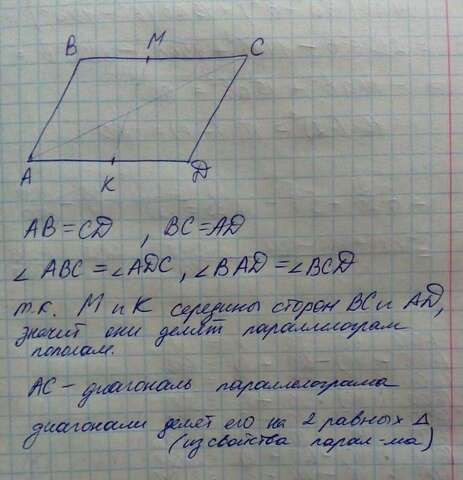 B M C
A K D
AB = CD , BC = AD
∠ ABC = ∠ADC , ∠BAD = ∠BCD
т.к. M и K середины сторон BC и AD,
значит они делят параллелограм
пополам.
AC – диагональ параллелограма
диагонали делят его на 2 равных Δ
(из свойства парал-ма)